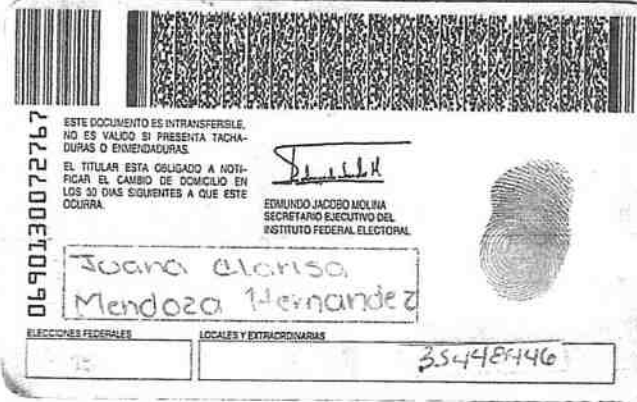 0690130072767
ESTE DOCUMENTO ES INTRANSFERIBLE,
NO ES VALIDO SI PRESENTA TACHA-
DURAS O ENMENDADURAS.
EL TITULAR ESTA OBLIGADO A NOTI-
FICAR EL CAMBIO DE DOMICILIO EN
LOS 30 DIAS SIGUIENTES A QUE ESTE
OCURRA.
EDMUNDO JACOBO MOLINA
SECRETARIO EJECUTIVO DEL
INSTITUTO FEDERAL ELECTORAL
Juana Clarisa
Mendoza Hernandez
ELECCIONES FEDERALES
LOCALES Y EXTRAORDINARIAS